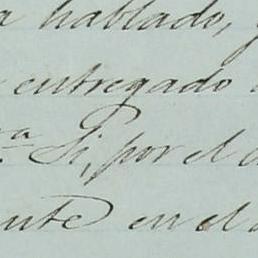 a hablado,
entregado
por el
ente en el